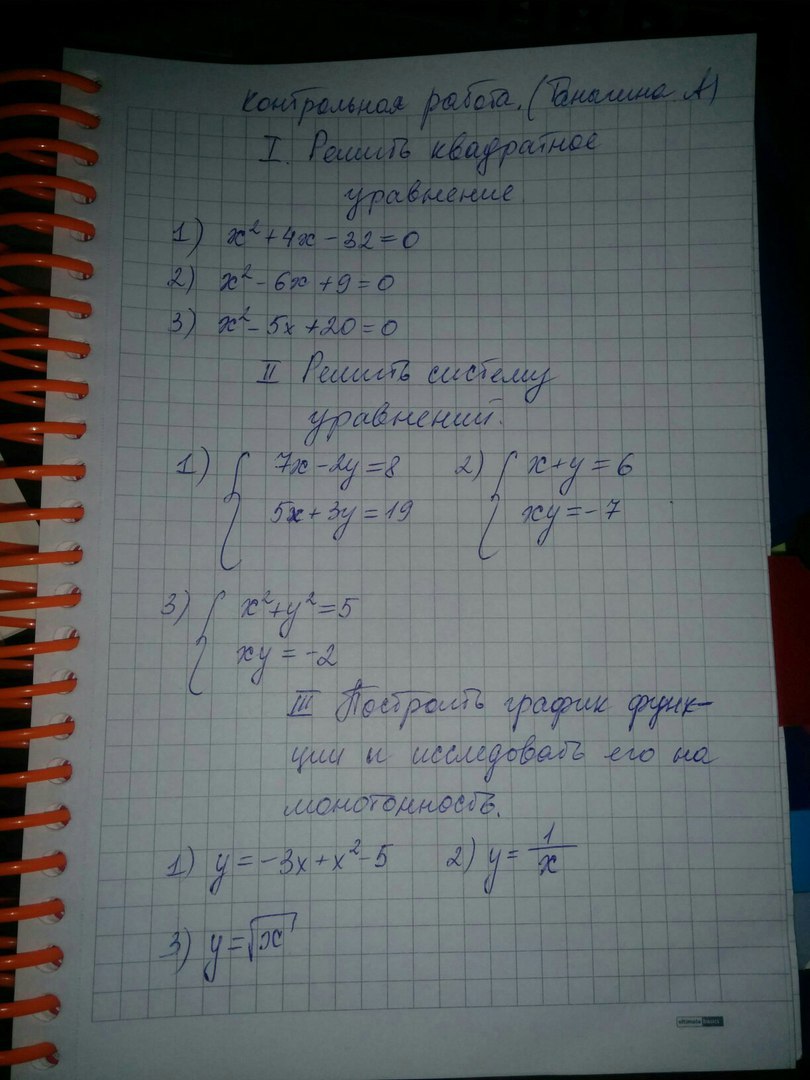 Контрольная работа. (Танагина А)
I. Решить квадратное
уравнение.
1) x² + 4x - 32 = 0
2) x² - 6x + 9 = 0
3) x² - 5x + 20 = 0
II Решить систему
уравнений.
1) { 7x - 2y = 8 2) { x + y = 6
5x + 3y = 19 xy = -7
3) { x² + y² = 5
xy = -2
III Построить график функ-
ции и исследовать его на
монотонность.
1) y = -3x + x² - 5 2) y = 1/x
3) y = √x
ultimate basics